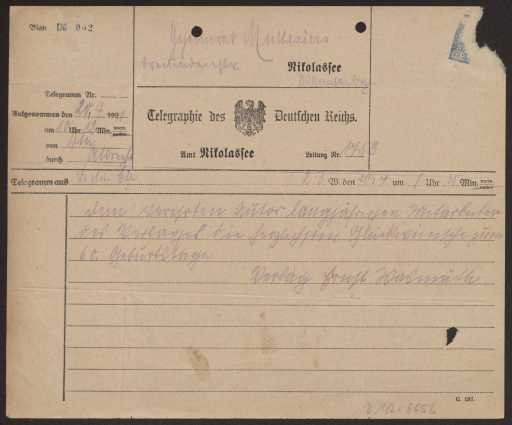 Geheimrat Muthesius
Nikolassee
Telegramm Nr.
Aufgenommen den 20/4 192
um Uhr Min.
von
durch
Telegraphie des Deutschen Reichs.
Amt Nikolassee Leitung Nr.
Telegramm aus W. den 20/4 um Uhr Min.
dem verehrten Autor langjährigen Mitarbeiter
des Verlages die herzlichsten Glückwünsche zum
60. Geburtstage
Verlag Ernst Wasmuth
C. 187.